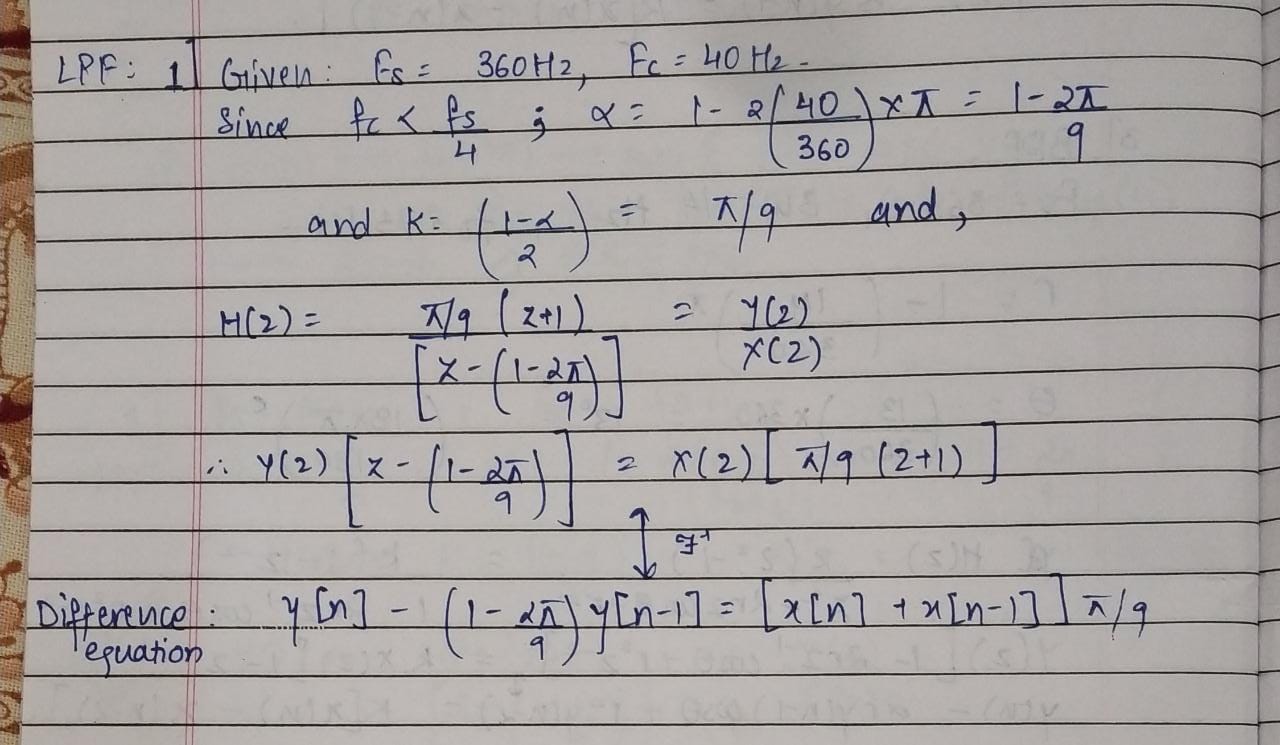 LPF: 1] Given: Fs = 360Hz, Fc = 40Hz.
Since fc < fs/4 ; α = 1 - 2(40/360) × π = 1 - 2π/9
and K = (1-α/2) = π/9 and,
H(z) = π/9 (z+1) / [z - (1 - 2π/9)] = Y(z)/X(z)
∴ Y(z) [z - (1 - 2π/9)] = X(z) [π/9 (z+1)]
↕ z⁻¹
Difference equation : y[n] - (1 - 2π/9) y[n-1] = [x[n] + x[n-1]] π/9